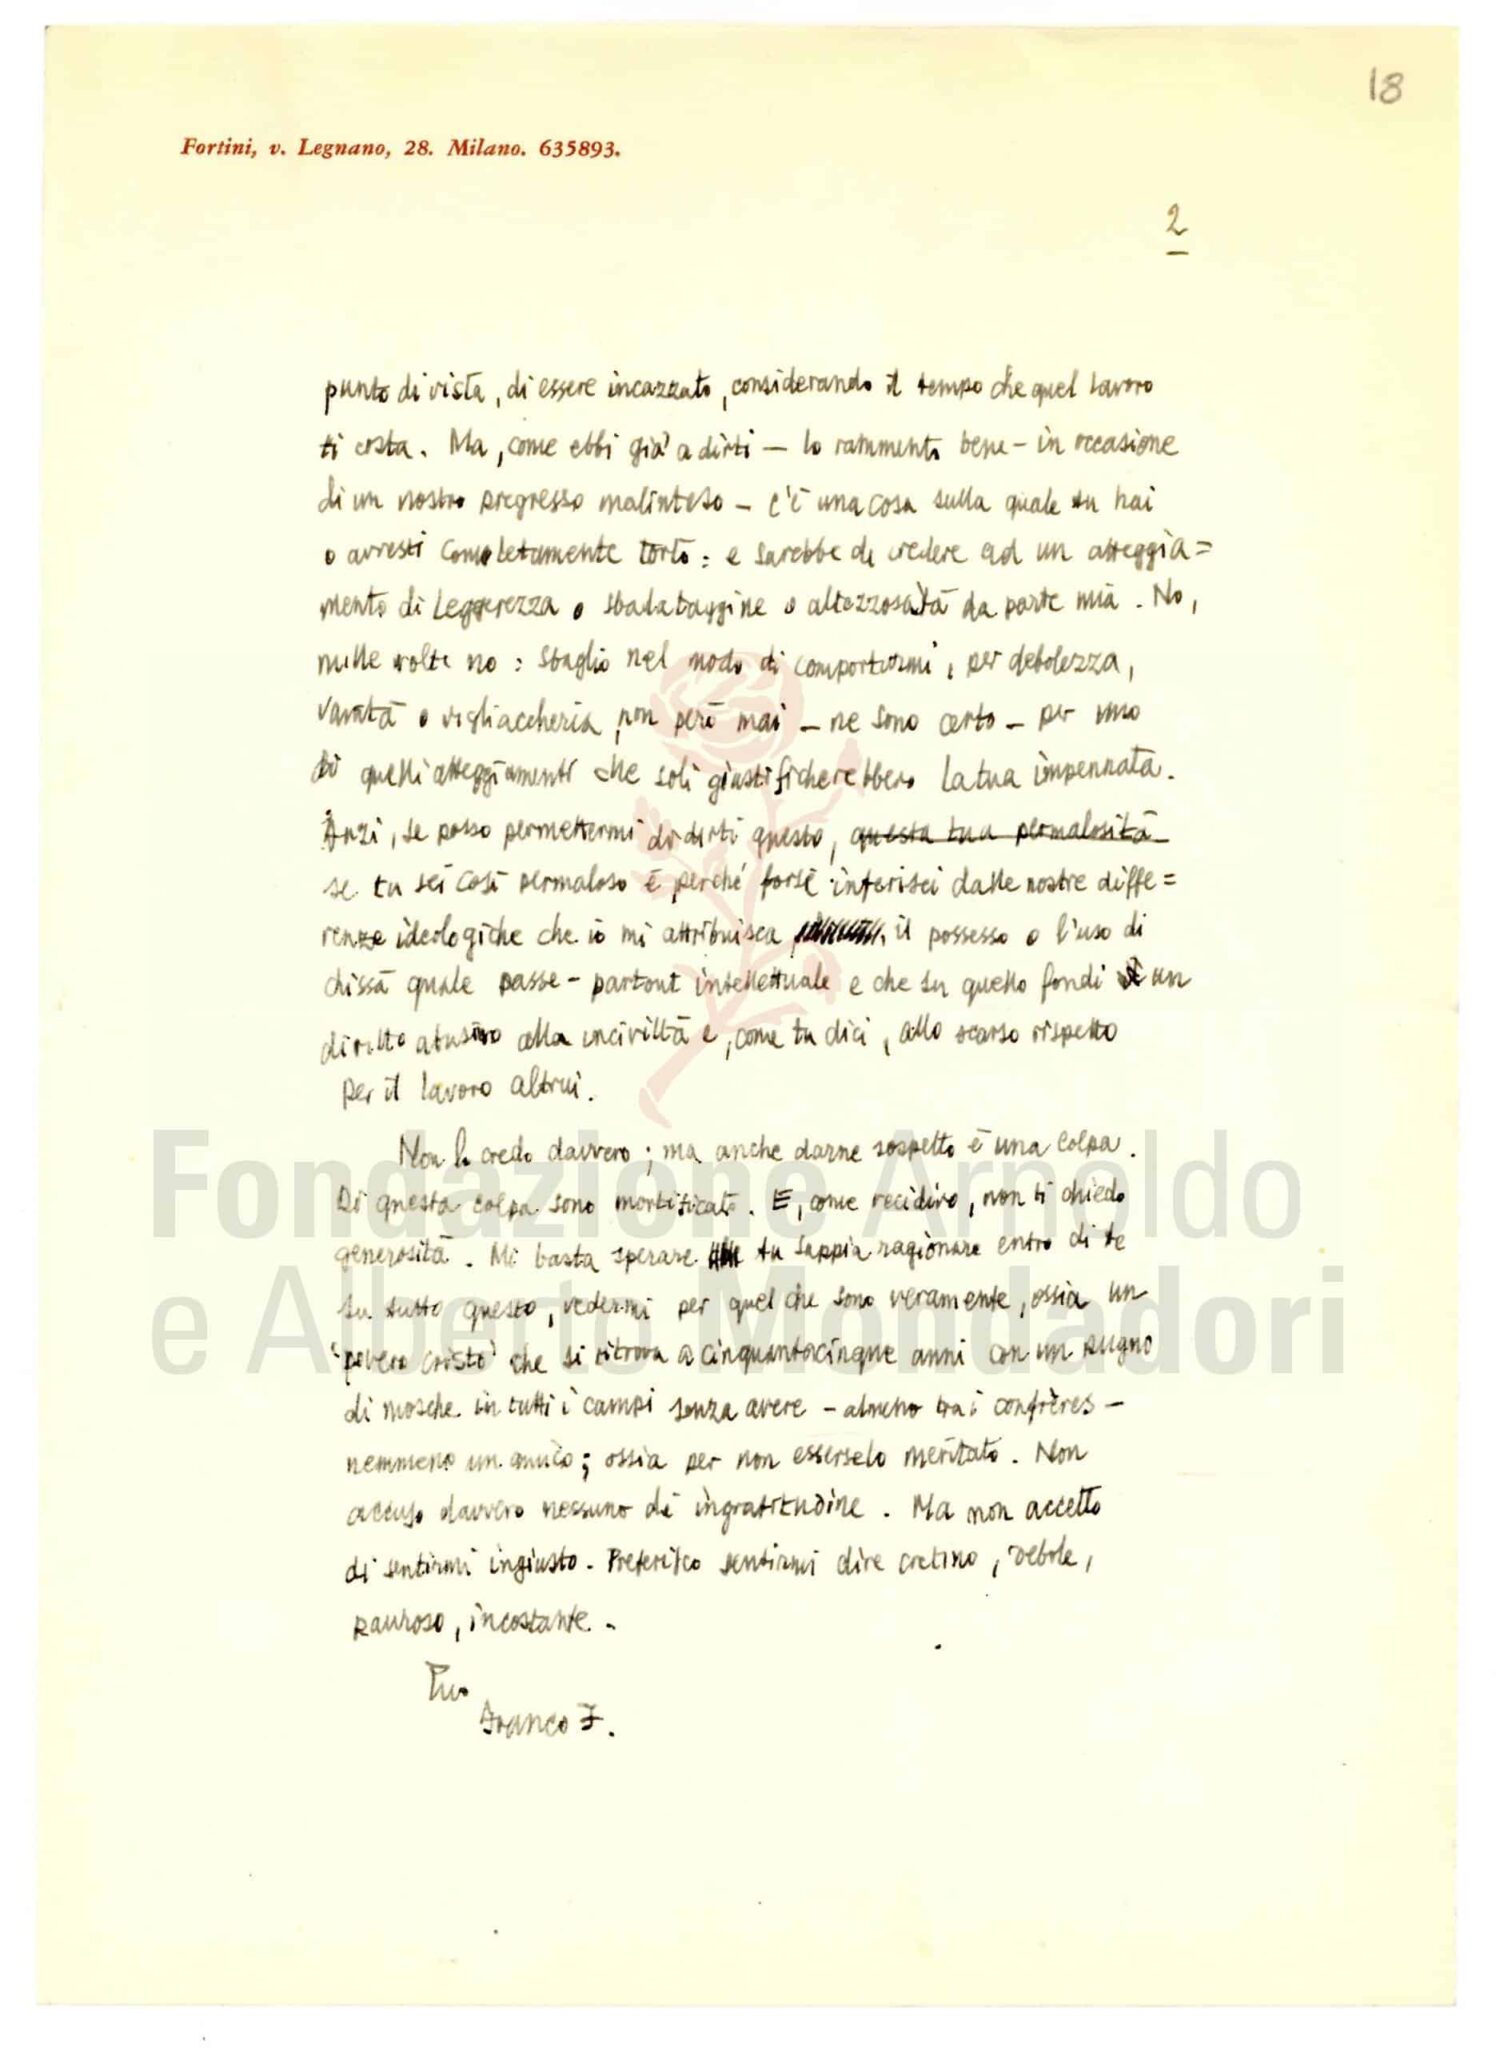 18
Fortini, v. Legnano, 28. Milano. 635893.
2
punto di vista, di essere incazzato, considerando il tempo che quel lavoro
ti costa. Ma, come ebbi già a dirti — lo rammento bene — in occasione
di un nostro pregresso malinteso — c'è una cosa sulla quale tu hai
o avresti completamente torto: e sarebbe di credere ad un atteggia=
mento di leggerezza o sbadataggine o altezzosità da parte mia. No,
mille volte no: sbaglio nel modo di comportarmi, per debolezza,
vanità o vigliaccheria, non però mai — ne sono certo — per uno
di quelli atteggiamenti che soli giustificherebbero la tua impennata.
Anzi, se posso permettermi di dirti questo, questa tua permalosità
se tu sei così permaloso è perché forse inferisci dalle nostre diffe=
renze ideologiche che io mi attribuisca il possesso o l'uso di
chissà quale passe-partout intellettuale e che su quello fondi un
diritto abusivo alla inciviltà e, come tu dici, allo scarso rispetto
per il lavoro altrui.
Non lo credo davvero; ma anche darne sospetto è una colpa.
Di questa colpa sono mortificato. E, come recidivo, non ti chiedo
generosità. Mi basta sperare tu sappia ragionare entro di te
su tutto questo, vedermi per quel che sono veramente, ossia un
"povero cristo" che si ritrova a cinquantacinque anni con un pugno
di mosche in tutti i campi senza avere — almeno tra i confrères —
nemmeno un amico; ossia per non esserselo meritato. Non
accuso davvero nessuno di ingratitudine. Ma non accetto
di sentirmi ingiusto. Preferisco sentirmi dire cretino, debole,
pauroso, incostante.
Tuo
Franco F.
Fondazione Arnoldo
e Alberto Mondadori